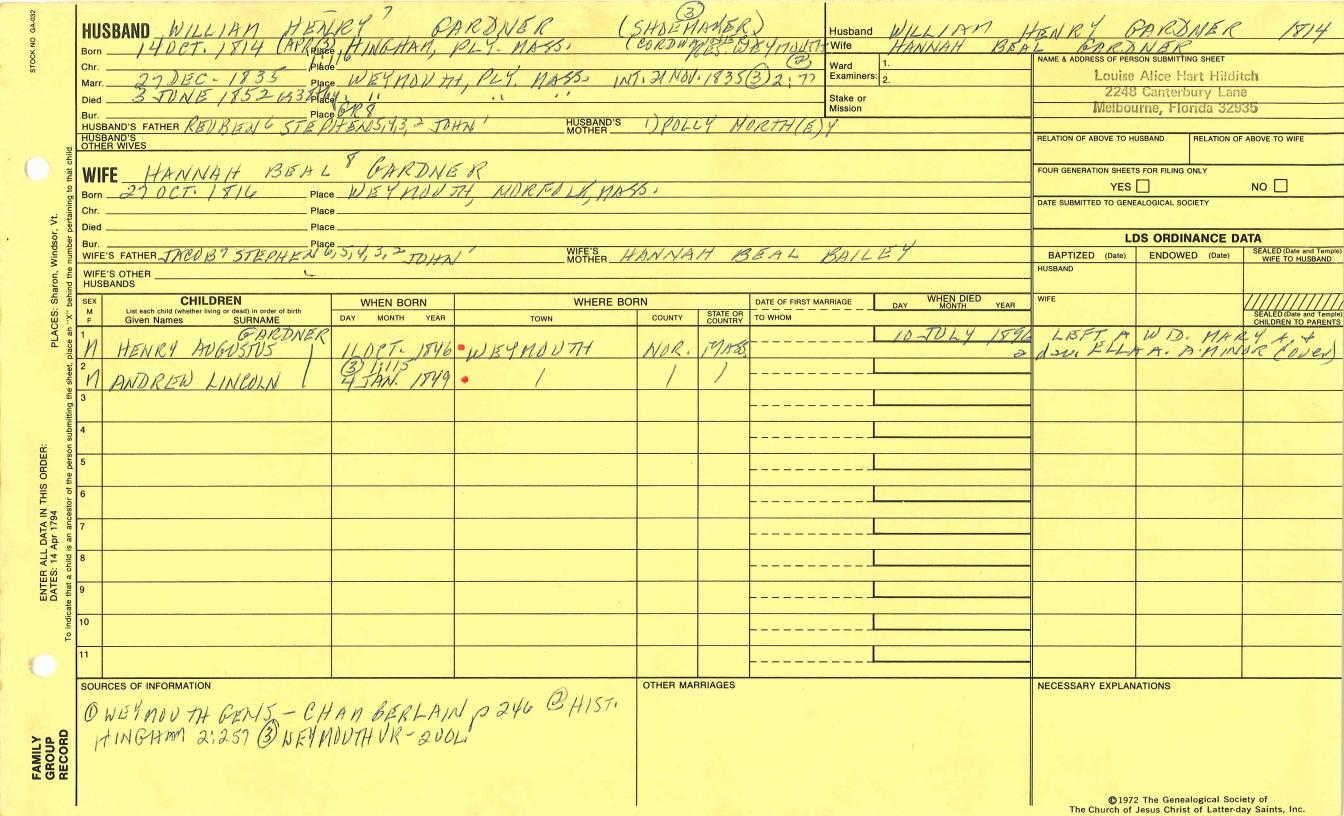 STOCK NO GA-032
HUSBAND WILLIAM HENRY 7 GARDNER (SHOEMAKER) ③
Born 14 OCT. 1814 (APR 3) Place HINGHAM, PLY. MASS.
Chr. Place
Marr. 27 DEC - 1835 Place WEYMOUTH, PLY. MASS. INT: 21 NOV. 1835 ③ 2:77
Died 3 JUNE 1852 Place " " "
Bur. Place GR8
HUSBAND'S FATHER REUBEN 6 STEPHEN 5,4,3,2 JOHN 1 HUSBAND'S MOTHER 1) POLLY NORTH(E)Y
HUSBAND'S OTHER WIVES
WIFE HANNAH BEAL 8 GARDNER
Born 27 OCT. 1816 Place WEYMOUTH, NORFOLK, MASS.
Chr. Place
Died Place
Bur. Place
WIFE'S FATHER JACOB 7 STEPHEN 6,5,4,3,2 JOHN 1 WIFE'S MOTHER HANNAH BEAL BAILEY
WIFE'S OTHER HUSBANDS
Husband WILLIAM HENRY GARDNER 1814
Wife HANNAH BEAL GARDNER
Ward Examiners: 1.
2.
Stake or Mission
NAME & ADDRESS OF PERSON SUBMITTING SHEET
Louise Alice Hart Hilditch
2248 Canterbury Lane
Melbourne, Florida 32935
RELATION OF ABOVE TO HUSBAND RELATION OF ABOVE TO WIFE
FOUR GENERATION SHEETS FOR FILING ONLY
YES NO
DATE SUBMITTED TO GENEALOGICAL SOCIETY
LDS ORDINANCE DATA
BAPTIZED (Date) ENDOWED (Date) SEALED (Date and Temple) WIFE TO HUSBAND
HUSBAND
WIFE
SEALED (Date and Temple) CHILDREN TO PARENTS
SEX M F CHILDREN WHEN BORN WHERE BORN DATE OF FIRST MARRIAGE WHEN DIED
List each child (whether living or dead) in order of birth
Given Names SURNAME DAY MONTH YEAR TOWN COUNTY STATE OR COUNTRY TO WHOM DAY MONTH YEAR
1 M HENRY AUGUSTUS GARDNER 11 OCT. 1846 WEYMOUTH NOR. MASS 10 JULY 1896 LEFT A WD. MARY A. &
dau. ELLA A. A MINOR (over)
2 M ANDREW LINCOLN ③ 1:115 4 JAN. 1849
3
4
5
6
7
8
9
10
11
SOURCES OF INFORMATION OTHER MARRIAGES NECESSARY EXPLANATIONS
① WEYMOUTH GENS - CHAMBERLAIN p 246 ② HIST.
HINGHAM 2:257 ③ WEYMOUTH VR - 2 VOL.
ENTER ALL DATA IN THIS ORDER:
DATES: 14 Apr 1794 PLACES: Sharon, Windsor, Vt.
To indicate that a child is an ancestor of the person submitting the sheet, place an "X" behind the number pertaining to that child.
FAMILY GROUP RECORD
©1972 The Genealogical Society of
The Church of Jesus Christ of Latter-day Saints, Inc.